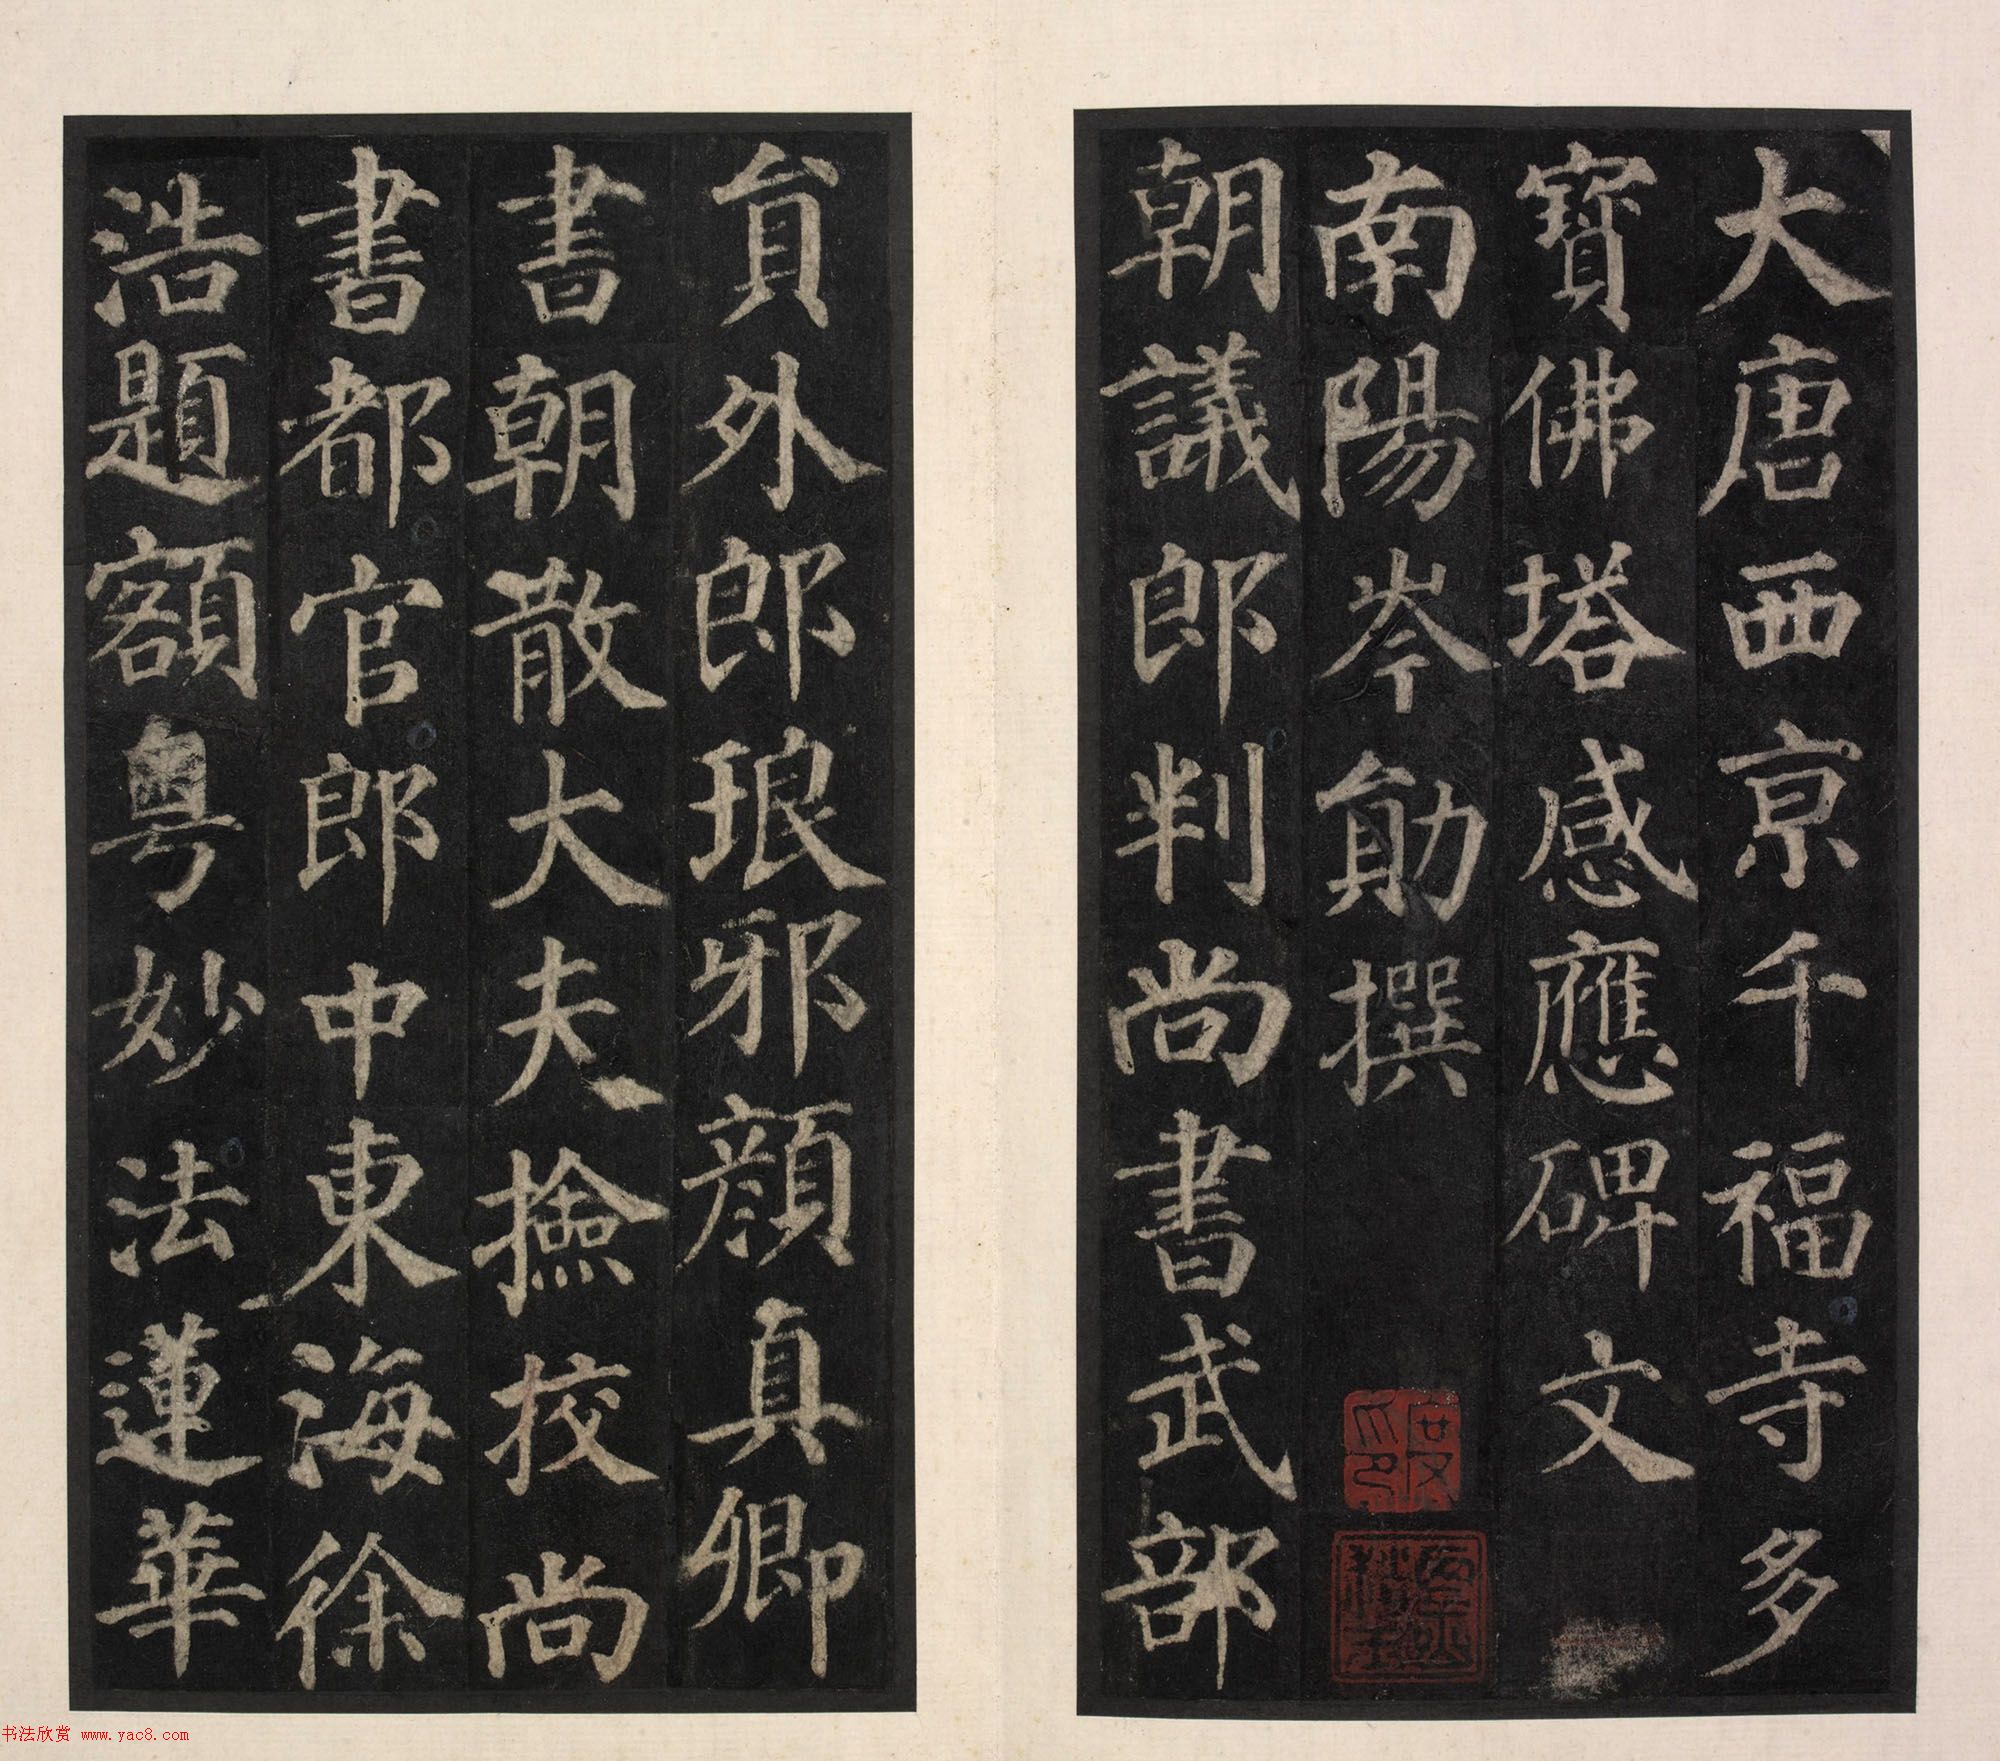 大唐西京千福寺多
寶佛塔感應碑文
南陽岑勛撰
朝議郎判尚書武部
貟外郎琅邪顏真卿
書朝散大夫撿挍尚
書都官郎中東海徐
浩題額粤妙法蓮華
书法欣赏 www.yac8.com